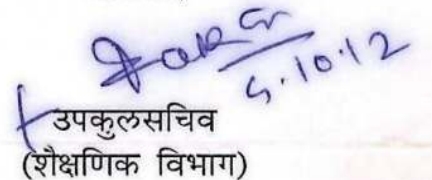 5.10.12
उपकुलसचिव
(शैक्षणिक विभाग)